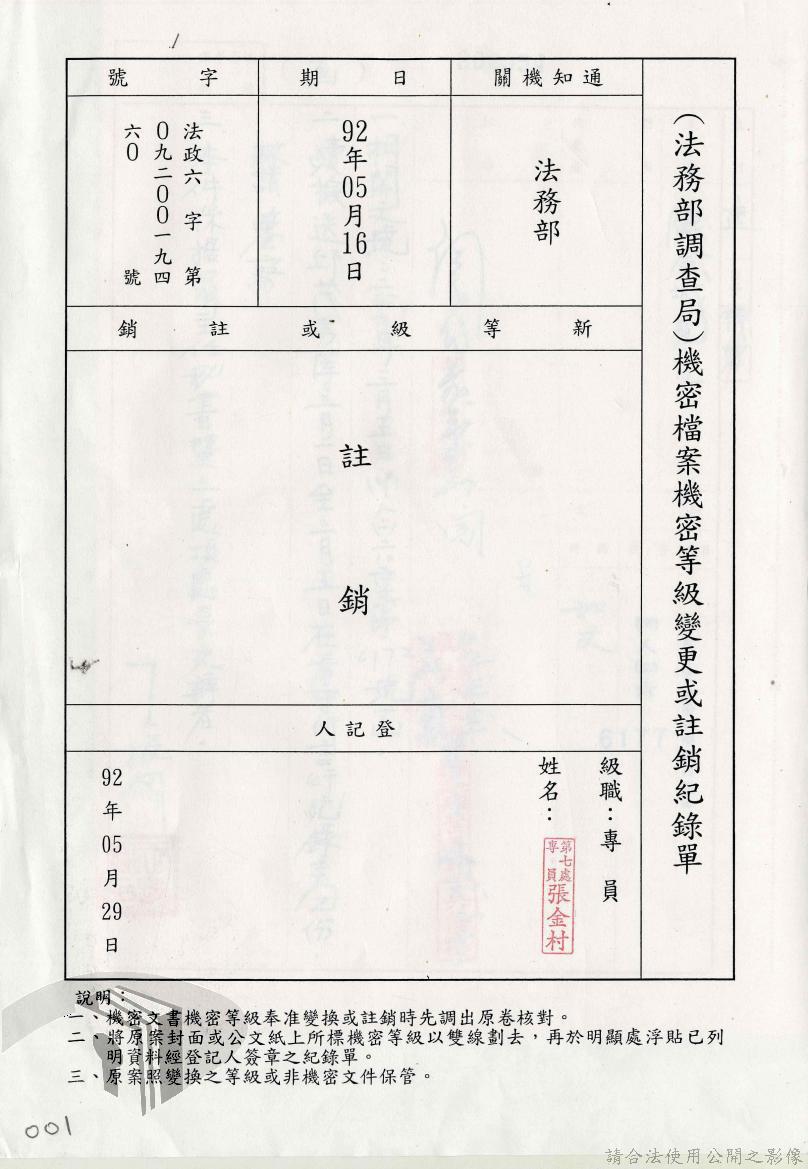 (法務部調查局)機密檔案機密等級變更或註銷紀錄單
通知機關
法務部
日期
92年05月16日
字號
法政六字第
0九二00一九四
六0號
新等級或註銷
註銷
登記人
級職:專員
姓名:
第七處
專員
張金村
92年05月29日
說明:
一、機密文書機密等級奉准變換或註銷時先調出原卷核對。
二、將原案封面或公文紙上所標機密等級以雙線劃去,再於明顯處浮貼已列
明資料經登記人簽章之紀錄單。
三、原案照變換之等級或非機密文件保管。
001
請合法使用公開之影像